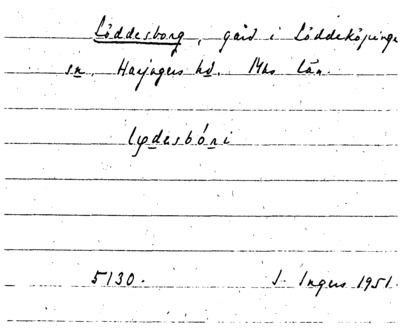 Löddesborg, gård i Löddeköpinge
sn. Harjagers hd. Mhs län.
lødesbóni
5130. I. Ingers 1951.